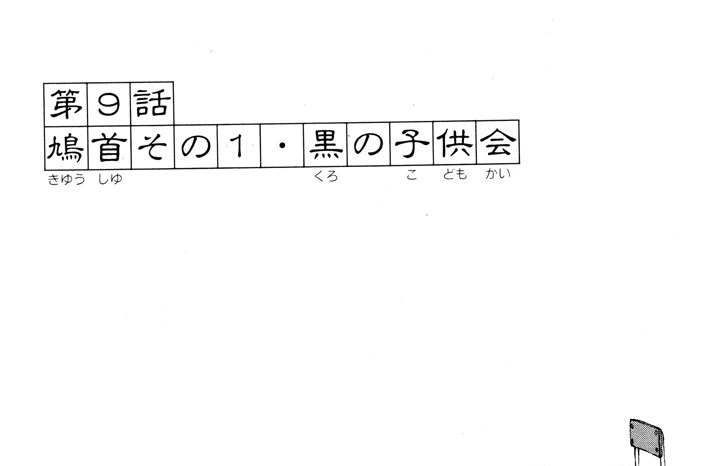 第9話
鳩首その1・黒の子供会
きゆう しゆ くろ こ ども かい